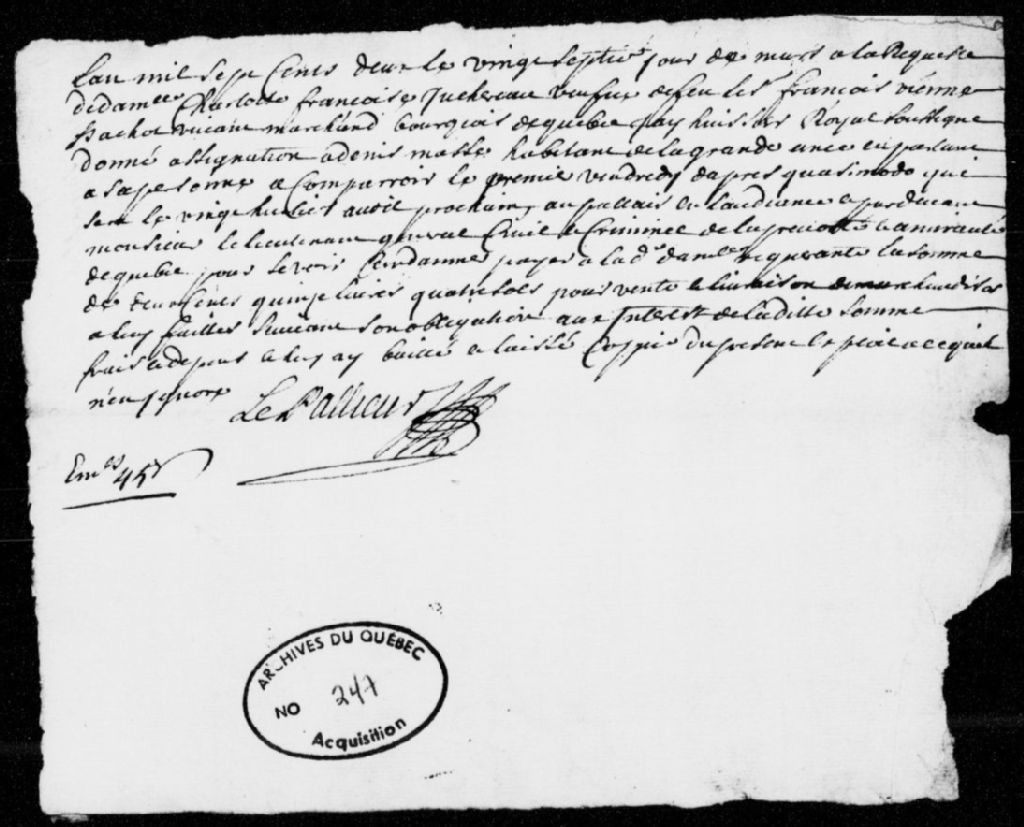 Lan mil sept Cents deux le vingt septie jour de mars a la Requeste
de dame Charlotte francoise Juchereau veufve de feu le Sr francois vienne
pachot vivant marchand bourgeois de quebec Jay huissier Royal soussigne
donné assignation a denis masse habitant de la grande ance en parlant
a sa personne a Comparroir le premie vendredy dapres quasimodo qui
sera le vingt huit avril prochain au pallais en laudience pardevant
monsieur le lieutenant general Civil & Criminel de la prevosté & amirauté
de quebec pour se voir Condamné payer a la d. dame requerante la somme
de deux cents quinze livres quatre sols pour vente & livraison de marchandises
a luy faittes suivant son obligation aux Interest de la ditte somme
frais & depens & luy ay baillé & laissé Coppie du present Exploit a ce quil
nen Ignore
Le Pallieur
Em.es 45s
ARCHIVES DU QUÉBEC
NO 247
Acquisition